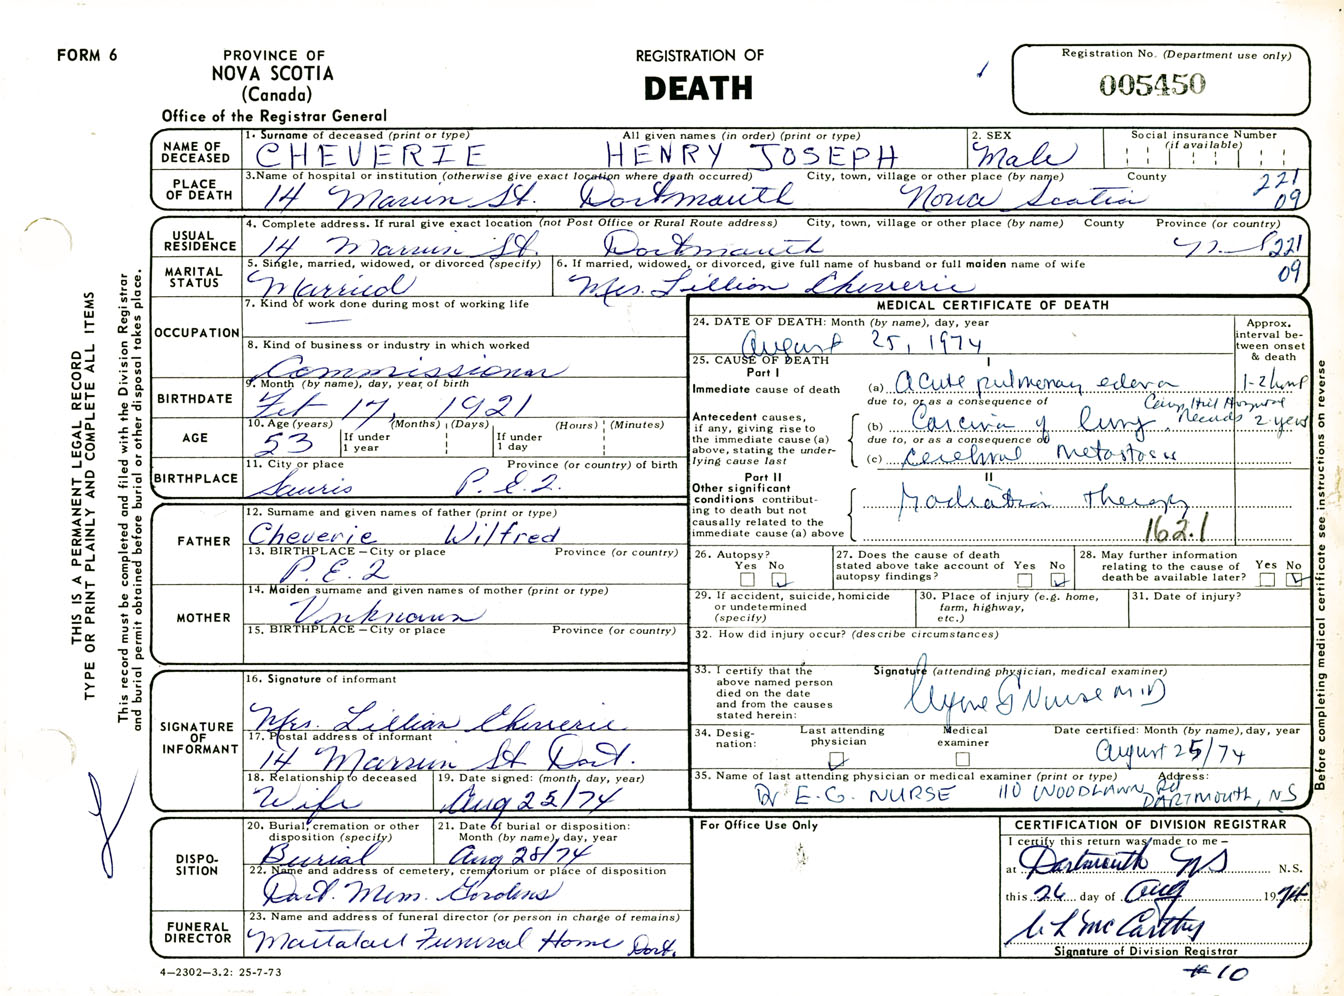 FORM 6
PROVINCE OF
NOVA SCOTIA
(Canada)
Office of the Registrar General
REGISTRATION OF
DEATH
Registration No. (Department use only)
005450
THIS IS A PERMANENT LEGAL RECORD
TYPE OR PRINT PLAINLY AND COMPLETE ALL ITEMS
This record must be completed and filed with the Division Registrar
and burial permit obtained before burial or other disposal takes place.
NAME OF DECEASED
1. Surname of deceased (print or type) All given names (in order) (print or type)
CHEVERIE HENRY JOSEPH
2. SEX
Male
Social insurance Number
(if available)
PLACE OF DEATH
3. Name of hospital or institution (otherwise give exact location where death occurred) City, town, village or other place (by name) County
14 Marvin St. Dartmouth Nova Scotia
221
09
USUAL RESIDENCE
4. Complete address. If rural give exact location (not Post Office or Rural Route address) City, town, village or other place (by name) County Province (or country)
14 Marvin St. Dartmouth N.S. 221
09
MARITAL STATUS
5. Single, married, widowed, or divorced (specify)
Married
6. If married, widowed, or divorced, give full name of husband or full maiden name of wife
Mrs. Lillian Cheverie
OCCUPATION
7. Kind of work done during most of working life
—
8. Kind of business or industry in which worked
Commissionar
BIRTHDATE
9. Month (by name), day, year of birth
Feb 17, 1921
AGE
10. Age (years) (Months) (Days) (Hours) (Minutes)
53 If under 1 year If under 1 day
BIRTHPLACE
11. City or place Province (or country) of birth
Souris P.E.I.
FATHER
12. Surname and given names of father (print or type)
Cheverie Wilfred
13. BIRTHPLACE—City or place Province (or country)
P.E.I
MOTHER
14. Maiden surname and given names of mother (print or type)
Unknown
15. BIRTHPLACE—City or place Province (or country)
SIGNATURE OF INFORMANT
16. Signature of informant
Mrs. Lillian Cheverie
17. Postal address of informant
14 Marvin St Dart.
18. Relationship to deceased
Wife
19. Date signed: (month, day, year)
Aug 25/74
DISPO-
SITION
20. Burial, cremation or other disposition (specify)
Burial
21. Date of burial or disposition: Month (by name), day, year
Aug 28/74
22. Name and address of cemetery, crematorium or place of disposition
Dart. Mem. Gardens
FUNERAL DIRECTOR
23. Name and address of funeral director (or person in charge of remains)
Mattatall Funeral Home Dart.
4—2302—3.2: 25-7-73
MEDICAL CERTIFICATE OF DEATH
24. DATE OF DEATH: Month (by name), day, year
August 25, 1974
Approx. interval be-
tween onset & death
25. CAUSE OF DEATH
Part I
I
Immediate cause of death
(a) Acute pulmonary edema
due to, or as a consequence of
Antecedent causes, if any, giving rise to the immediate cause (a) above, stating the under-
lying cause last
(b) Carcinoma of lung. 2 years
due to, or as a consequence of
(c) Cerebral metastasis
Part II
II
Other significant conditions contribut-
ing to death but not causally related to the immediate cause (a) above
Radiation therapy
162.1
26. Autopsy?
Yes No
27. Does the cause of death stated above take account of autopsy findings?
Yes No
28. May further information relating to the cause of death be available later?
Yes No
29. If accident, suicide, homicide or undetermined (specify)
30. Place of injury (e.g. home, farm, highway, etc.)
31. Date of injury?
32. How did injury occur? (describe circumstances)
33. I certify that the above named person died on the date and from the causes stated herein:
Signature (attending physician, medical examiner)
G Nurse M.D
34. Desig-
nation:
Last attending physician
Medical examiner
Date certified: Month (by name), day, year
August 25/74
35. Name of last attending physician or medical examiner (print or type) Address:
Dr E.G. NURSE 110 WOODLAWN RD
DARTMOUTH, NS
Before completing medical certificate see instructions on reverse
For Office Use Only
CERTIFICATION OF DIVISION REGISTRAR
I certify this return was made to me—
at Dartmouth NS N.S.
this 26 day of Aug 1974
McCarthy
Signature of Division Registrar
# 10